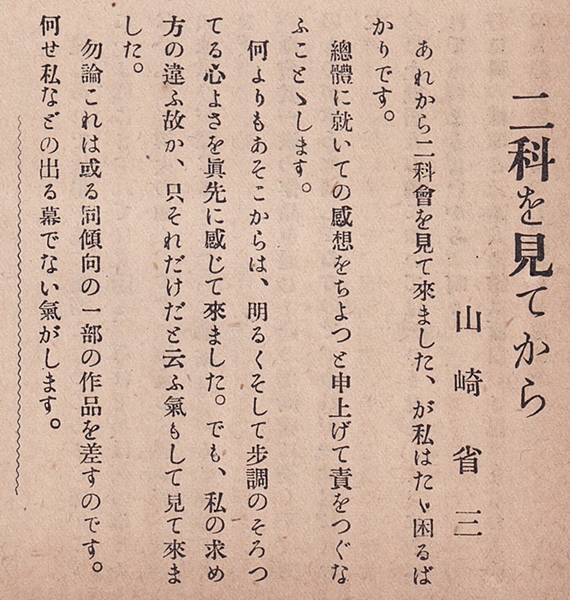 二科を見てから
山崎省三
あれから二科會を見て來ました、が私はたゞ困るば
かりです。
總體に就いての感想をちよつと申上げて責をつぐな
ふことゝします。
何よりもあそこからは、明るくそして步調のそろつ
てる心よさを眞先に感じて來ました。でも、私の求め
方の違ふ故か、只それだけだと云ふ氣もして見て來ま
した。
勿論これは或る同傾向の一部の作品を差すのです。
何せ私などの出る幕でない氣がします。